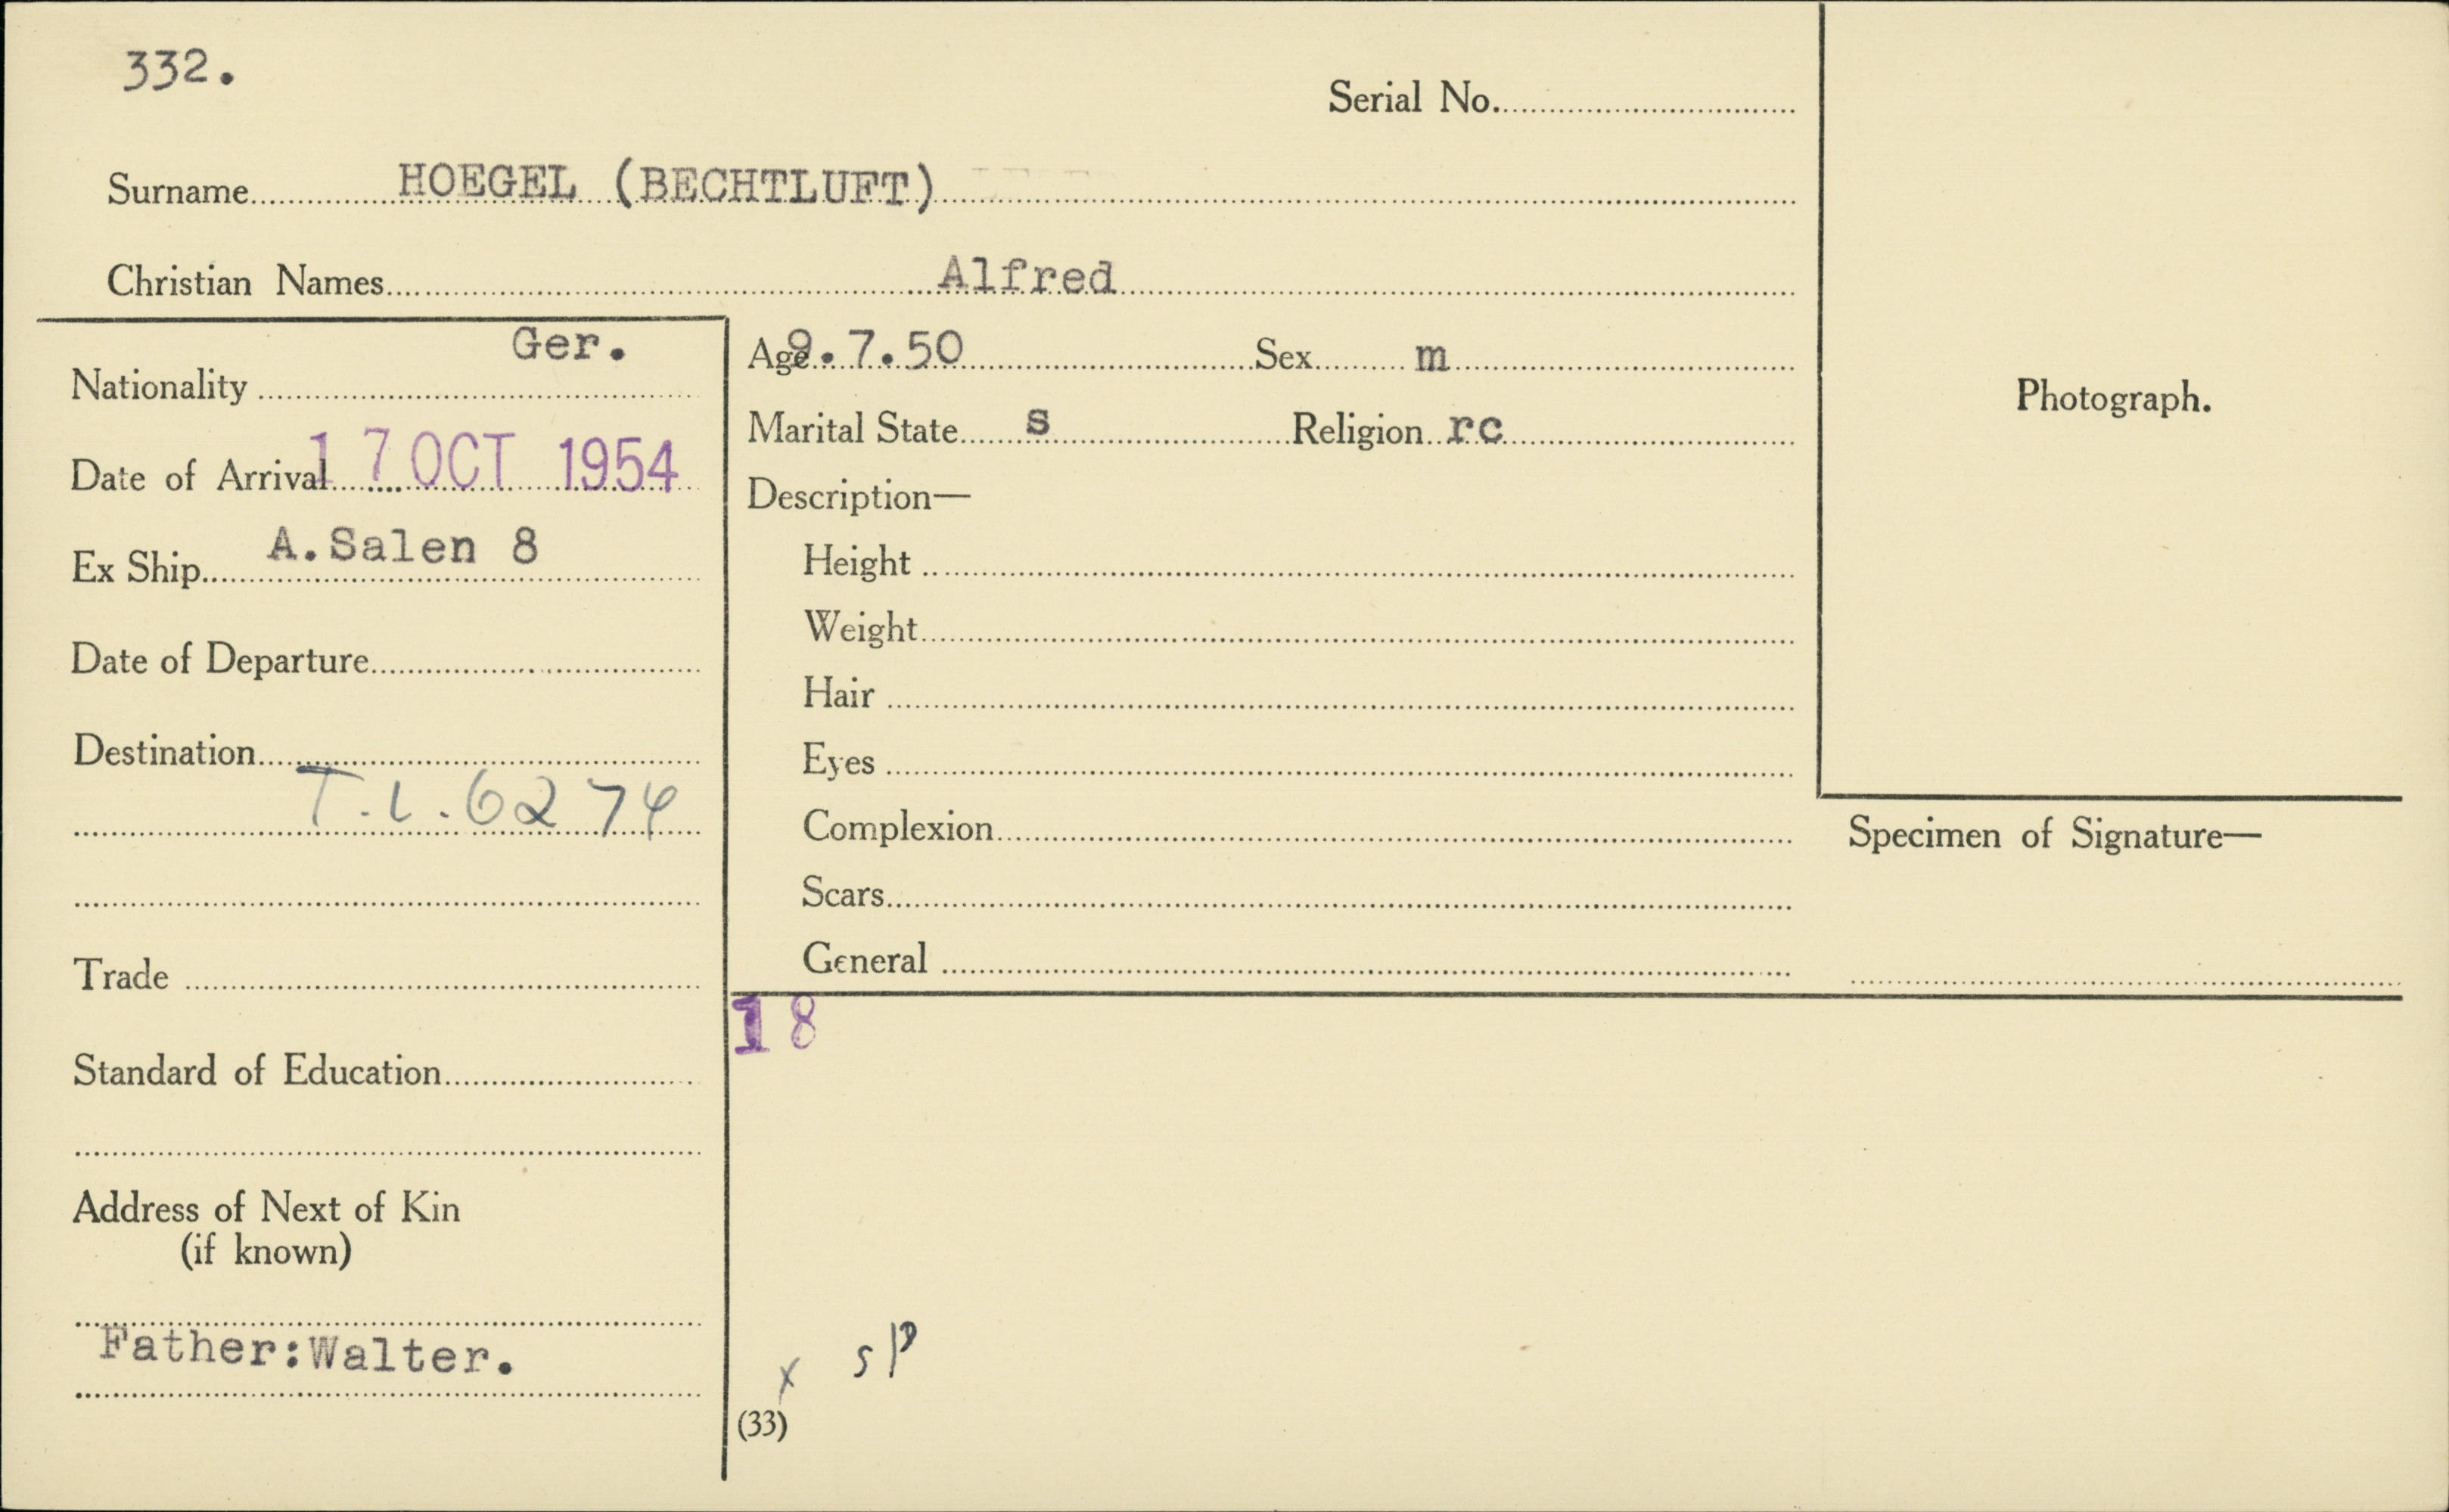 332.
Serial No.
Surname HOEGEL (BECHTLUFT)
Christian Names Alfred
Nationality Ger.
Date of Arrival 17 OCT 1954
Ex Ship A.Salen 8
Date of Departure
Destination
T.L.6274
Trade
Standard of Education
Address of Next of Kin
(if known)
Father:Walter.
Age 9.7.50 Sex m
Marital State s Religion rc
Description—
Height
Weight
Hair
Eyes
Complexion
Scars
General
Photograph.
Specimen of Signature—
18
x sp
(33)